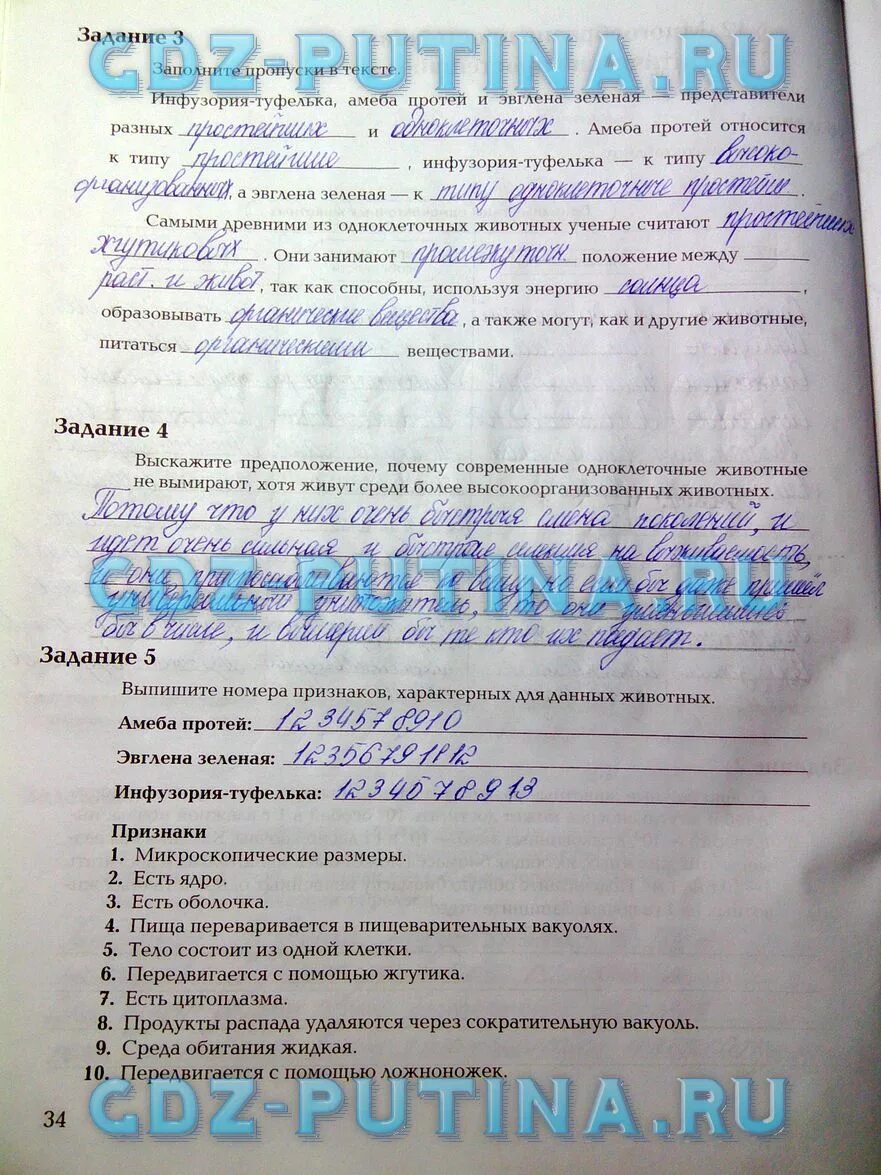 Задание 3
GDZ-PUTINA.RU
Заполните пропуски в тексте.
Инфузория-туфелька, амеба протей и эвглена зеленая — представители
разных простейших и одноклеточных. Амеба протей относится
к типу простейшие, инфузория-туфелька — к типу высоко-
организованных, а эвглена зеленая — к типу одноклеточные простейш.
Самыми древними из одноклеточных животных ученые считают простейших
жгутиковых. Они занимают промежуточн положение между
раст. и живот, так как способны, используя энергию солнца,
образовывать органические вещества, а также могут, как и другие животные,
питаться органическими веществами.
GDZ-PUTINA.RU
Задание 4
Выскажите предположение, почему современные одноклеточные животные
не вымирают, хотя живут среди более высокоорганизованных животных.
Потому что у них очень быстрая смена поколений, и
идет очень сильная и быстрая селекция на выживаемость,
и они приспосабливаются ко всему, но если бы даже пришёл
GDZ-PUTINA.RU
универсальный уничтожатель, то они уменьшились
бы в числе, и вымерли бы те кто их поедает.
Задание 5
Выпишите номера признаков, характерных для данных животных.
Амеба протей: 1 2 3 4 5 7 8 9 10
Эвглена зеленая: 1 2 3 5 6 7 9 11 12
Инфузория-туфелька: 1 2 3 4 5 7 8 9 13
Признаки
1. Микроскопические размеры.
2. Есть ядро.
3. Есть оболочка.
4. Пища переваривается в пищеварительных вакуолях.
5. Тело состоит из одной клетки.
6. Передвигается с помощью жгутика.
7. Есть цитоплазма.
8. Продукты распада удаляются через сократительную вакуоль.
9. Среда обитания жидкая.
10. Передвигается с помощью ложноножек.
34
GDZ-PUTINA.RU